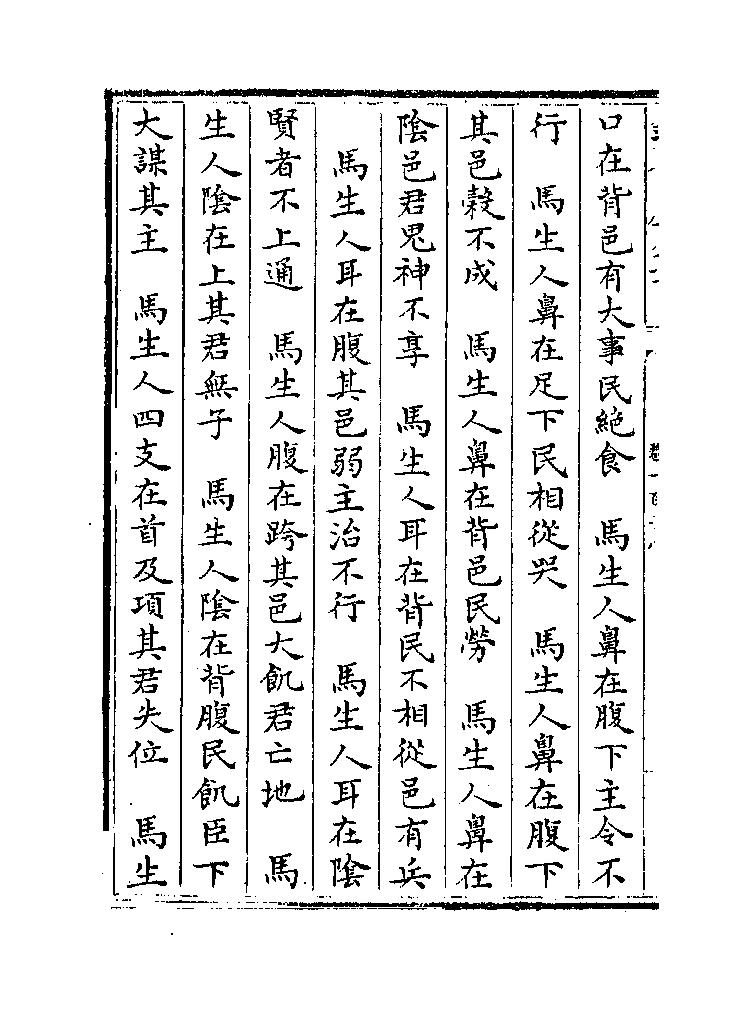 口在背邑有大事民絶食　馬生人鼻在腹下主令不
行　馬生人鼻在足下民相從哭　馬生人鼻在腹下
其邑穀不成　馬生人鼻在背邑民勞　馬生人鼻在
陰邑君鬼神不享　馬生人耳在背民不相從邑有兵
　馬生人耳在腹其邑弱主治不行　馬生人耳在陰
賢者不上通　馬生人腹在跨其邑大飢君亡地　馬
生人陰在上其君無子　馬生人陰在背腹民飢臣下
大謀其主　馬生人四支在首及項其君失位　馬生